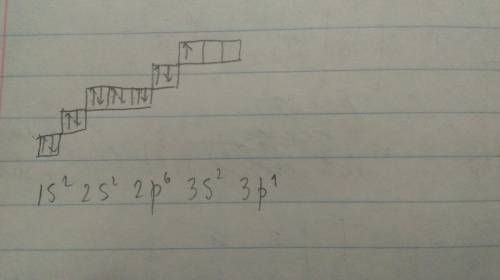 1s² 2s² 2p⁶ 3s² 3p¹